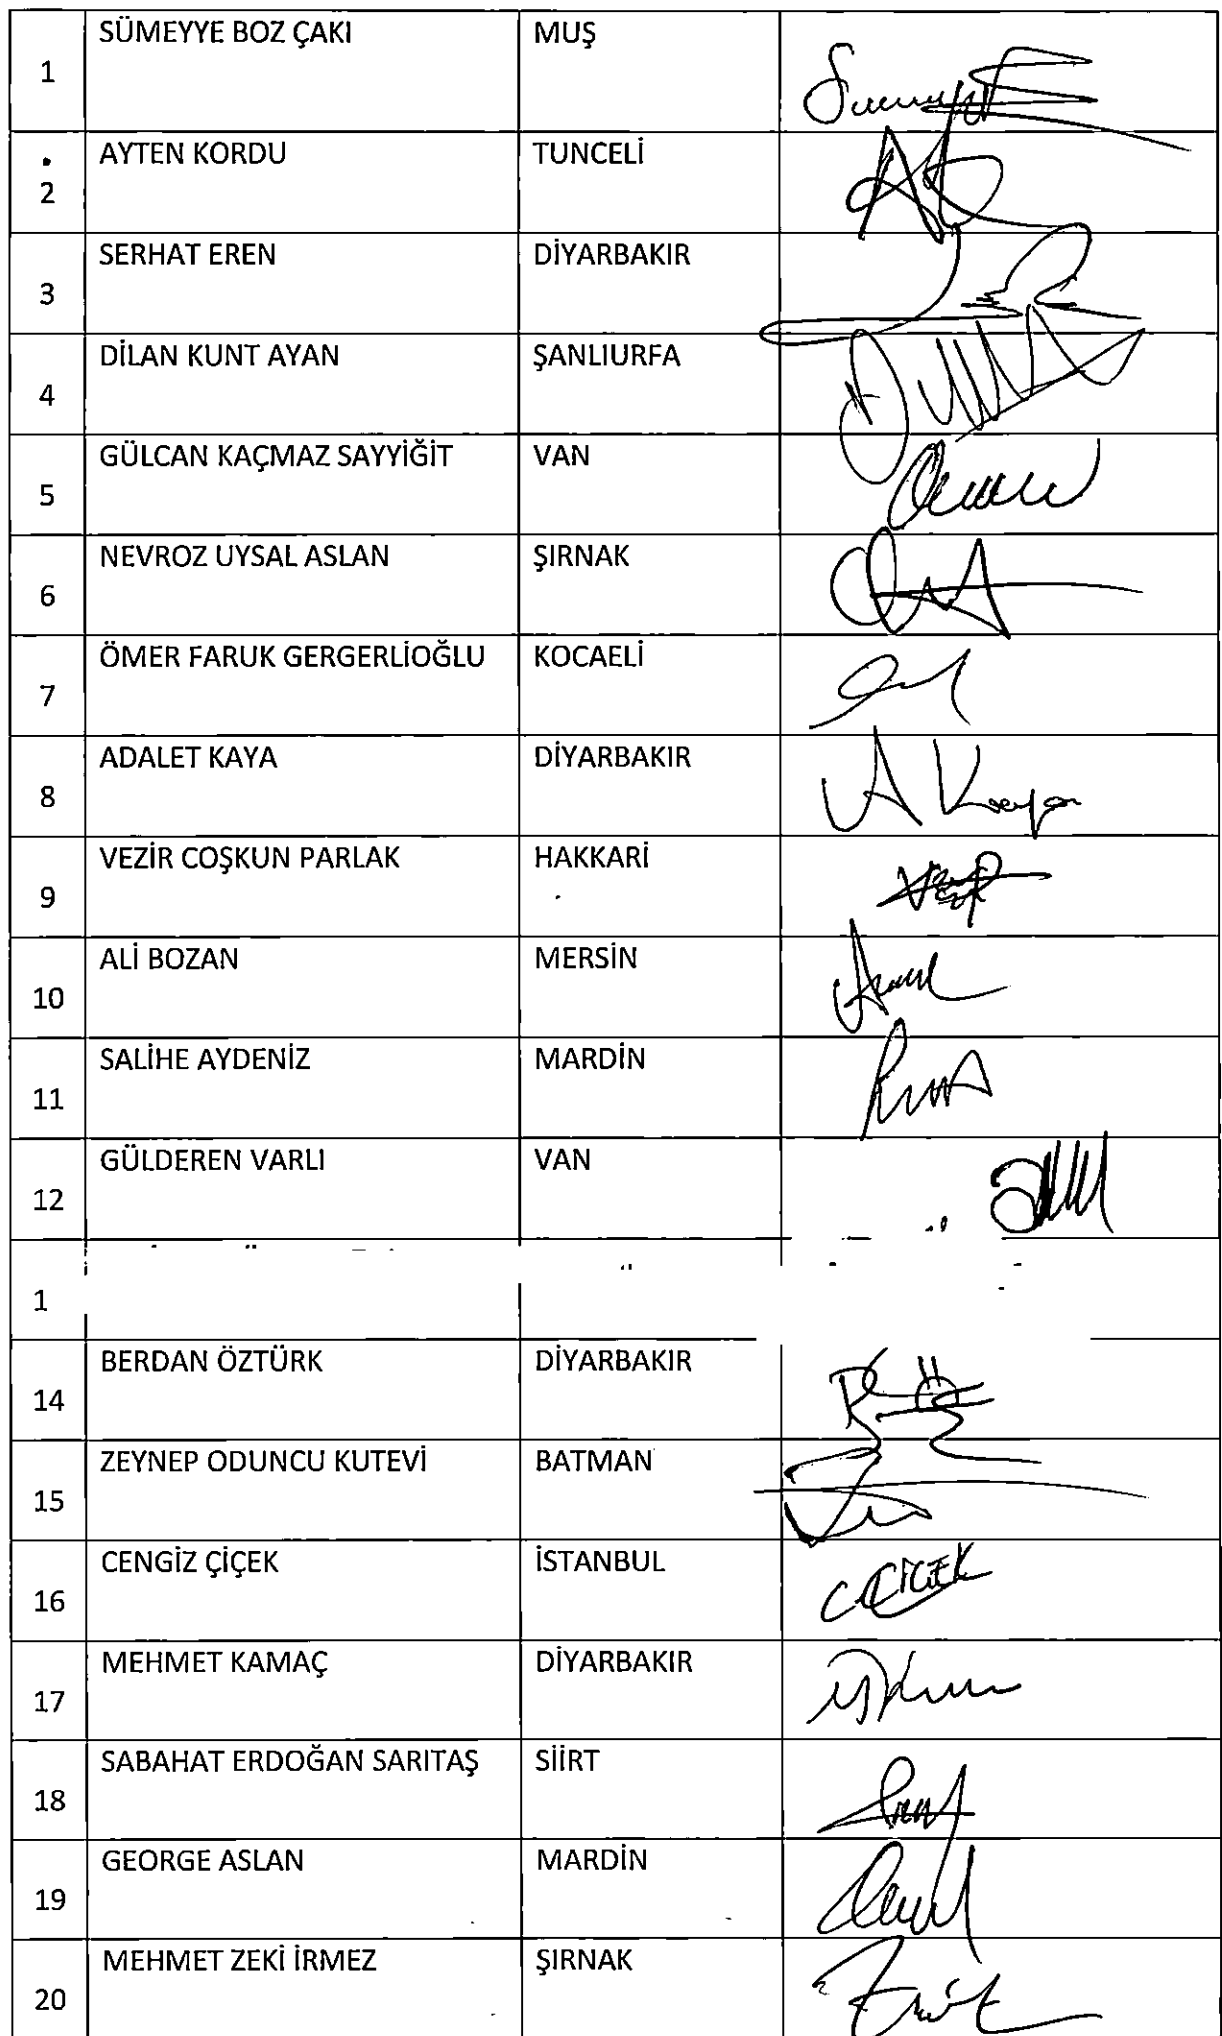 1 SÜMEYYE BOZ ÇAKI MUŞ
2 AYTEN KORDU TUNCELİ
3 SERHAT EREN DİYARBAKIR
4 DİLAN KUNT AYAN ŞANLIURFA
5 GÜLCAN KAÇMAZ SAYYİĞİT VAN
6 NEVROZ UYSAL ASLAN ŞIRNAK
7 ÖMER FARUK GERGERLİOĞLU KOCAELİ
8 ADALET KAYA DİYARBAKIR
A Kaya
9 VEZİR COŞKUN PARLAK HAKKARİ
10 ALİ BOZAN MERSİN
11 SALİHE AYDENİZ MARDİN
12 GÜLDEREN VARLI VAN
1
14 BERDAN ÖZTÜRK DİYARBAKIR
15 ZEYNEP ODUNCU KUTEVİ BATMAN
16 CENGİZ ÇİÇEK İSTANBUL
C ÇİÇEK
17 MEHMET KAMAÇ DİYARBAKIR
18 SABAHAT ERDOĞAN SARITAŞ SİİRT
19 GEORGE ASLAN MARDİN
20 MEHMET ZEKİ İRMEZ ŞIRNAK